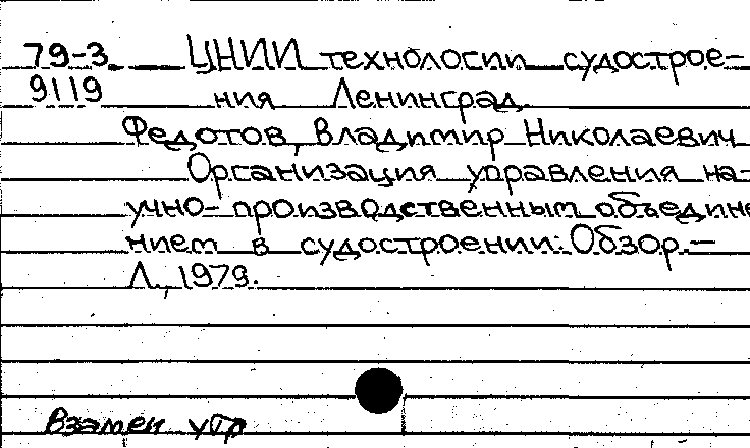 79-3 ЦНИИ технологии судострое-
9119 ния Ленинград
Федотов, Владимир Николаевич
Организация управления на-
учно-производственным объедине
нием в судостроении: Обзор.-
Л., 1979.
Взамен утр